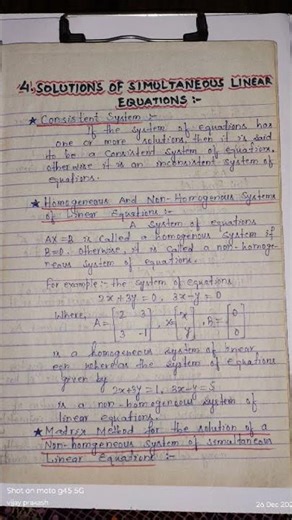 4. SOLUTIONS OF SIMULTANEOUS LINEAR
EQUATIONS :-
★ Consistent System :-
If the system of equations has
one or more solutions then it is said
to be a consistent system of equations,
otherwise it is an inconsistent system of
equations.
★ Homogeneous And Non-Homogenous Systems
of Linear Equations :-
A system of equations
AX=B is called a homogenous system if
B=0. Otherwise, it is called a non-homoge-
neous system of equations.
For example :- the system of equations
2x+3y=0, 3x-y=0
Where, A= [2 3 , X= [x , B= [0
3 -1] y] 0]
is a homogeneous system of linear
eqn whereas the system of equations
given by
2x+3y=1, 3x-y=5
is a non-homogeneous system of
linear equations.
★ Matrix Method for the solution of a
Non-homogeneous System of simultaneous
Linear Equations :-
Shot on moto g45 5G
vijay prakash
26 Dec 202